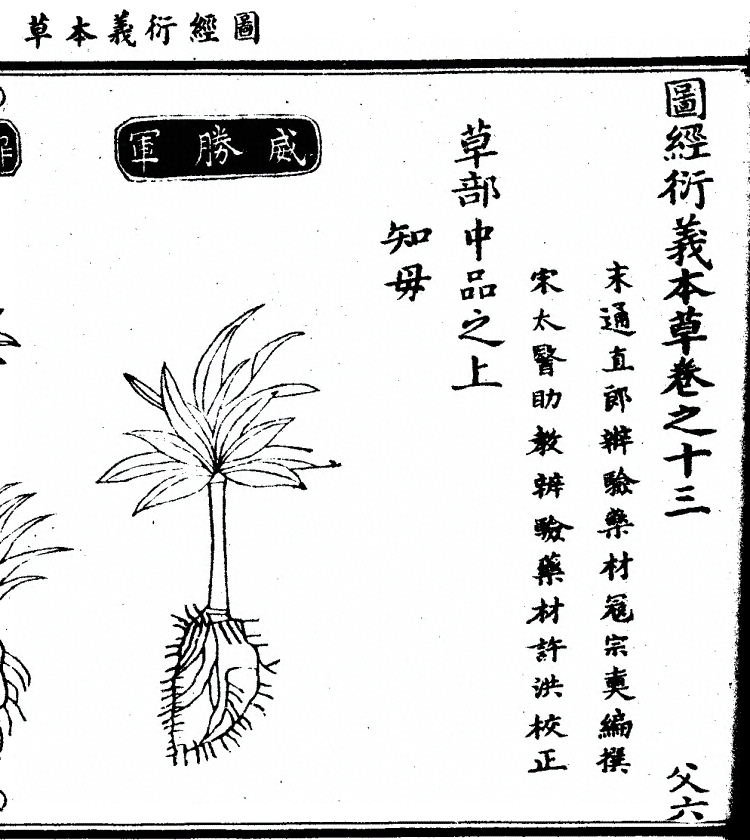 圖經衍義本草
圖經衍義本草卷之十三
父六
宋通直郎辨驗藥材寇宗奭編撰
宋太醫助教辨驗藥材許洪校正
草部中品之上
知母
威勝軍